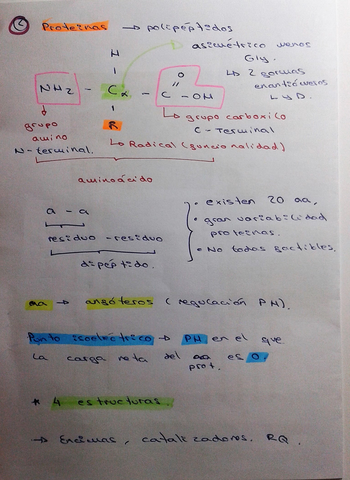 2 Proteinas → polipéptidos
asimétrico menos Gly.
↳ 2 formas enantiómeros L y D.
H
NH2 - Cα - C - OH
O
R
grupo amino
N-terminal.
↳ grupo carboxilo
C-terminal
↳ Radical (funcionalidad)
aminoácido
a - a
residuo - residuo
dipéptido.
• existen 20 aa,
• gran variabilidad proteinas.
• No todas factibles.
aa → anfóteros (regulación PH).
Punto isoeléctrico → PH en el que
la carga neta del aa es 0.
prot.
* 4 estructuras.
→ Enzimas, catalizadores. RQ.